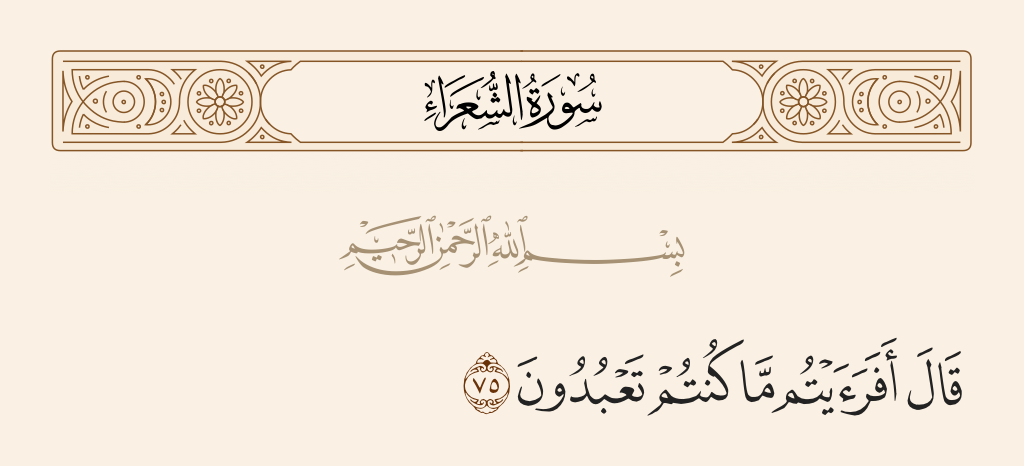 سُورَةُ الشُّعَرَاءِ
بِسْمِ ٱللَّهِ ٱلرَّحْمَٰنِ ٱلرَّحِيمِ
قَالَ أَفَرَءَيْتُم مَّا كُنتُمْ تَعْبُدُونَ ٧٥